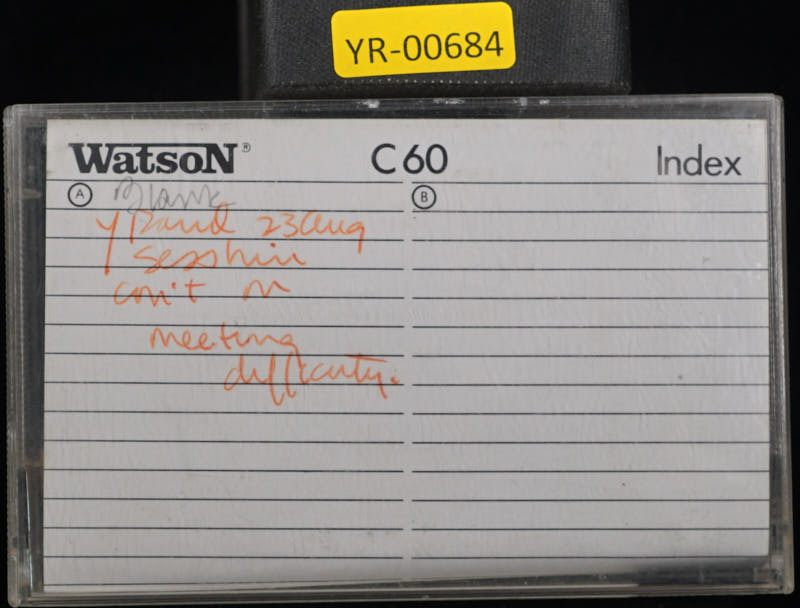 YR-00684
WatsoN® C60 Index
A Blank B
Y Rand 23 Aug
sesshin
con't on
meeting
difficulty.